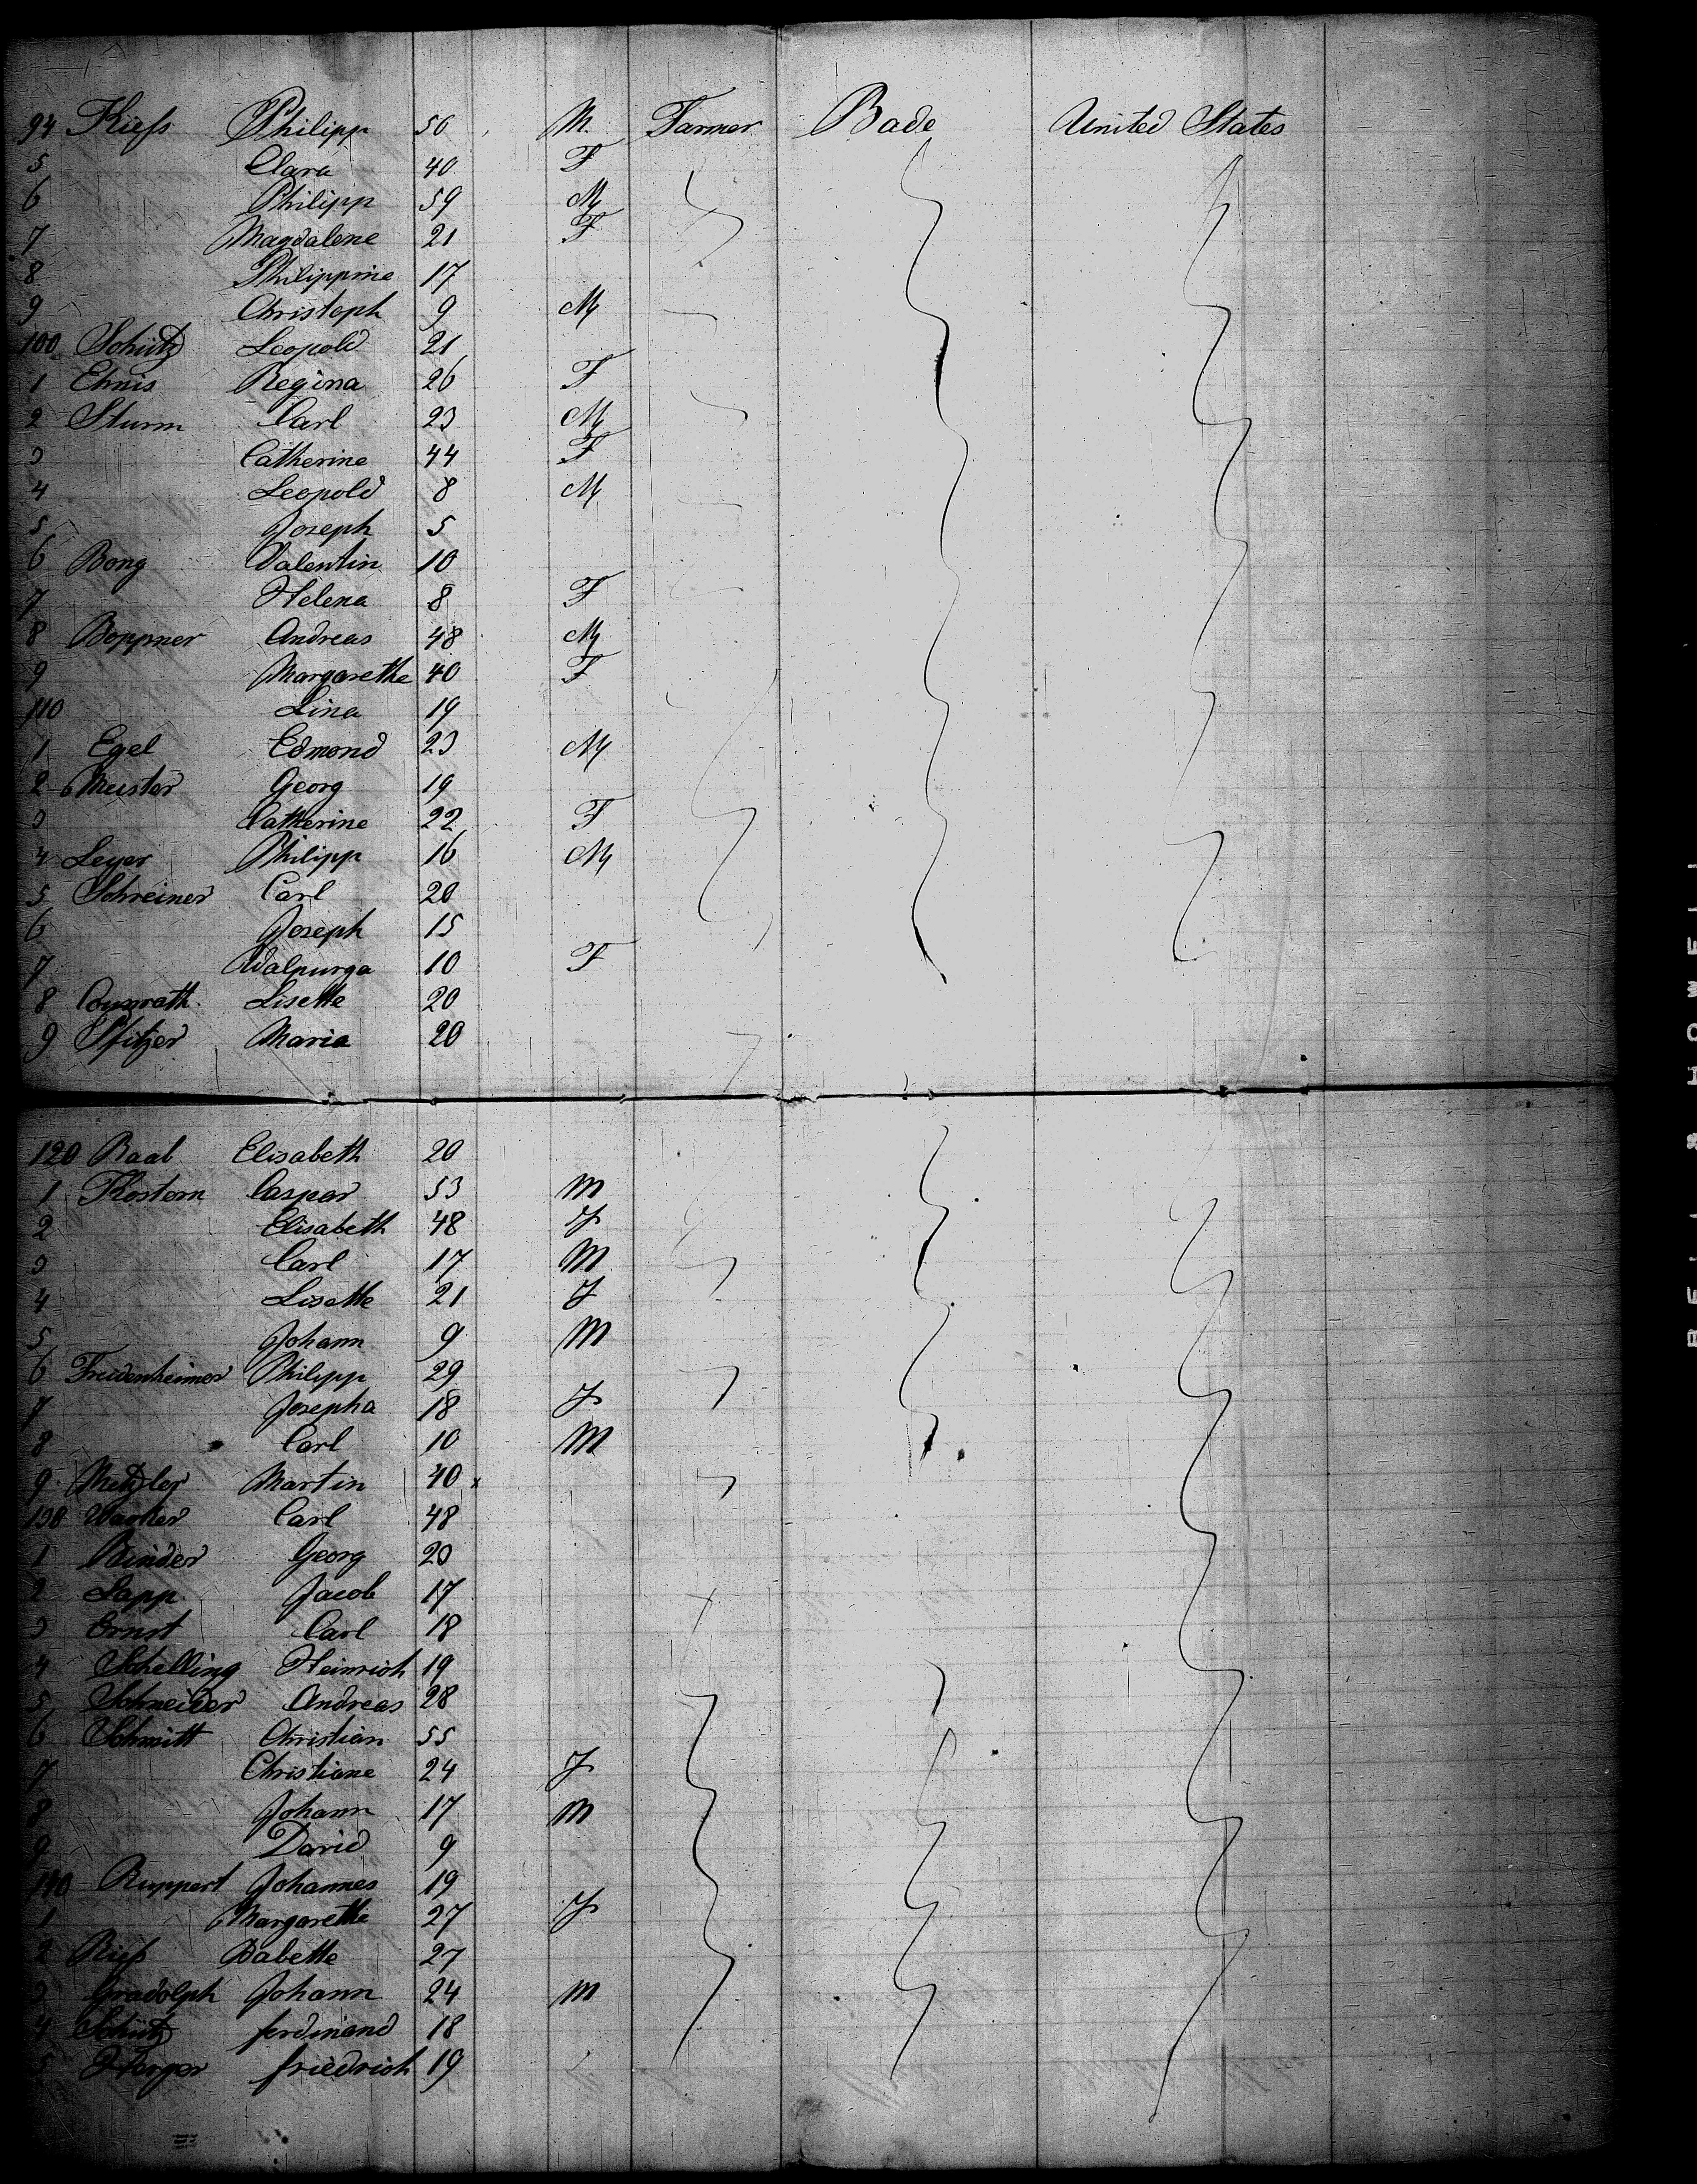 94 Kiefs Philipp 50 M. Farmer Bade United States
5 Clara 40 F
6 Philipp 59 M
7 Magdalene 21 F
8 Philippine 17
9 Christoph 9 M
100 Schütz Leopold 21
1 Ehnis Regina 26 F
2 Sturm Carl 23 M
3 Catherine 44 F
4 Leopold 8 M
5 Joseph 5
6 Bong Valentin 10
7 Helena 8 F
8 Boppner Andreas 48 M
9 Margarethe 40 F
110 Lina 19
1 Egel Edmond 23 M
2 Meister Georg 19
3 Catherine 22 F
4 Leyer Philipp 16 M
5 Schreiner Carl 20
6 Joseph 15
7 Walpurga 10 F
8 Lisette 20
9 Pfitzer Maria 20
120 Baal Elisabeth 20
1 Kostern Caspar 53 M
2 Elisabeth 48 F
3 Carl 17 M
4 Lisette 21 F
5 Johann 9 M
6 Freidenheimer Philipp 29
7 Josepha 18 F
8 Carl 10 M
9 Metzler Martin 40 x
130 Wacker Carl 48
1 Binder Georg 20
2 Lapp Jacob 17
3 Ernst Carl 18
4 Schelling Heinrich 19
5 Schneider Andreas 28
6 Schmitt Christian 55
7 Christiane 24 F
8 Johann 17 M
9 David 9
140 Ruppert Johannes 19
1 Margarethe 27 F
2 Babette 27
3 Gradolph Johann 24 M
4 Schütz ferdinand 18
5 friedrich 19
BELL & HOWELL